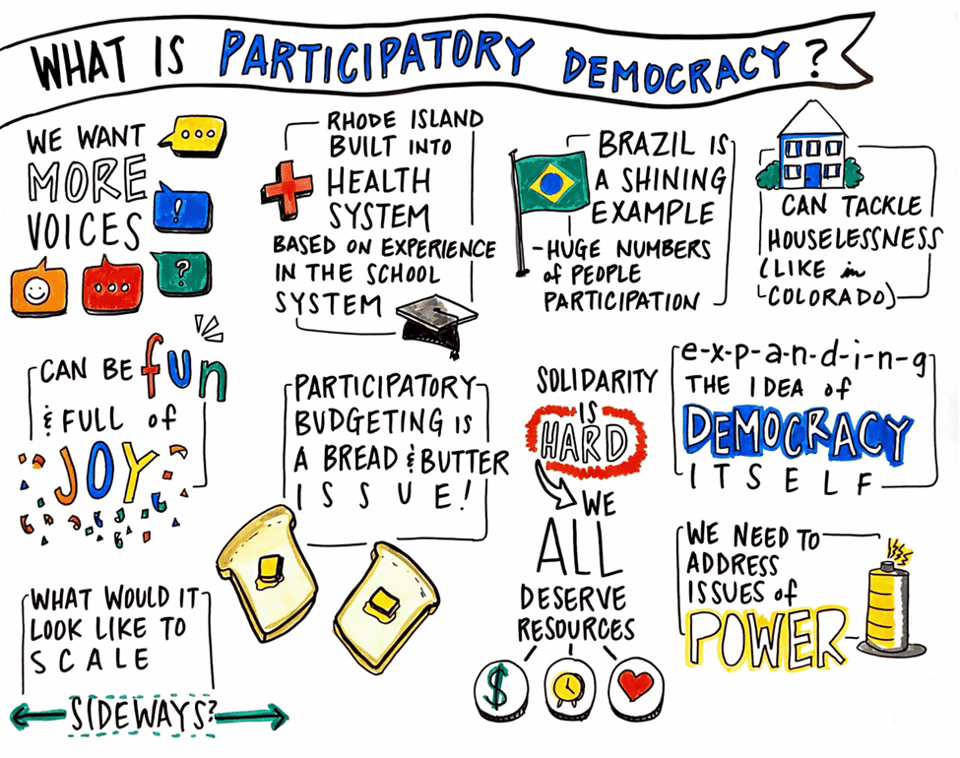 WHAT IS PARTICIPATORY DEMOCRACY?
WE WANT
MORE
VOICES
!
?
RHODE ISLAND
BUILT INTO
HEALTH
SYSTEM
BASED ON EXPERIENCE
IN THE SCHOOL
SYSTEM
BRAZIL IS
A SHINING
EXAMPLE
-HUGE NUMBERS
of PEOPLE
PARTICIPATION
CAN TACKLE
HOUSELESSNESS
(LIKE in
COLORADO)
CAN BE fun
& FULL of
JOY
PARTICIPATORY
BUDGETING IS
A BREAD & BUTTER
ISSUE!
SOLIDARITY
IS
HARD
WE
ALL
DESERVE
RESOURCES
$
e-x-p-a-n-d-i-n-g
THE IDEA of
DEMOCRACY
ITSELF
WE NEED TO
ADDRESS
ISSUES of
POWER
WHAT WOULD IT
LOOK LIKE TO
SCALE
SIDEWAYS?